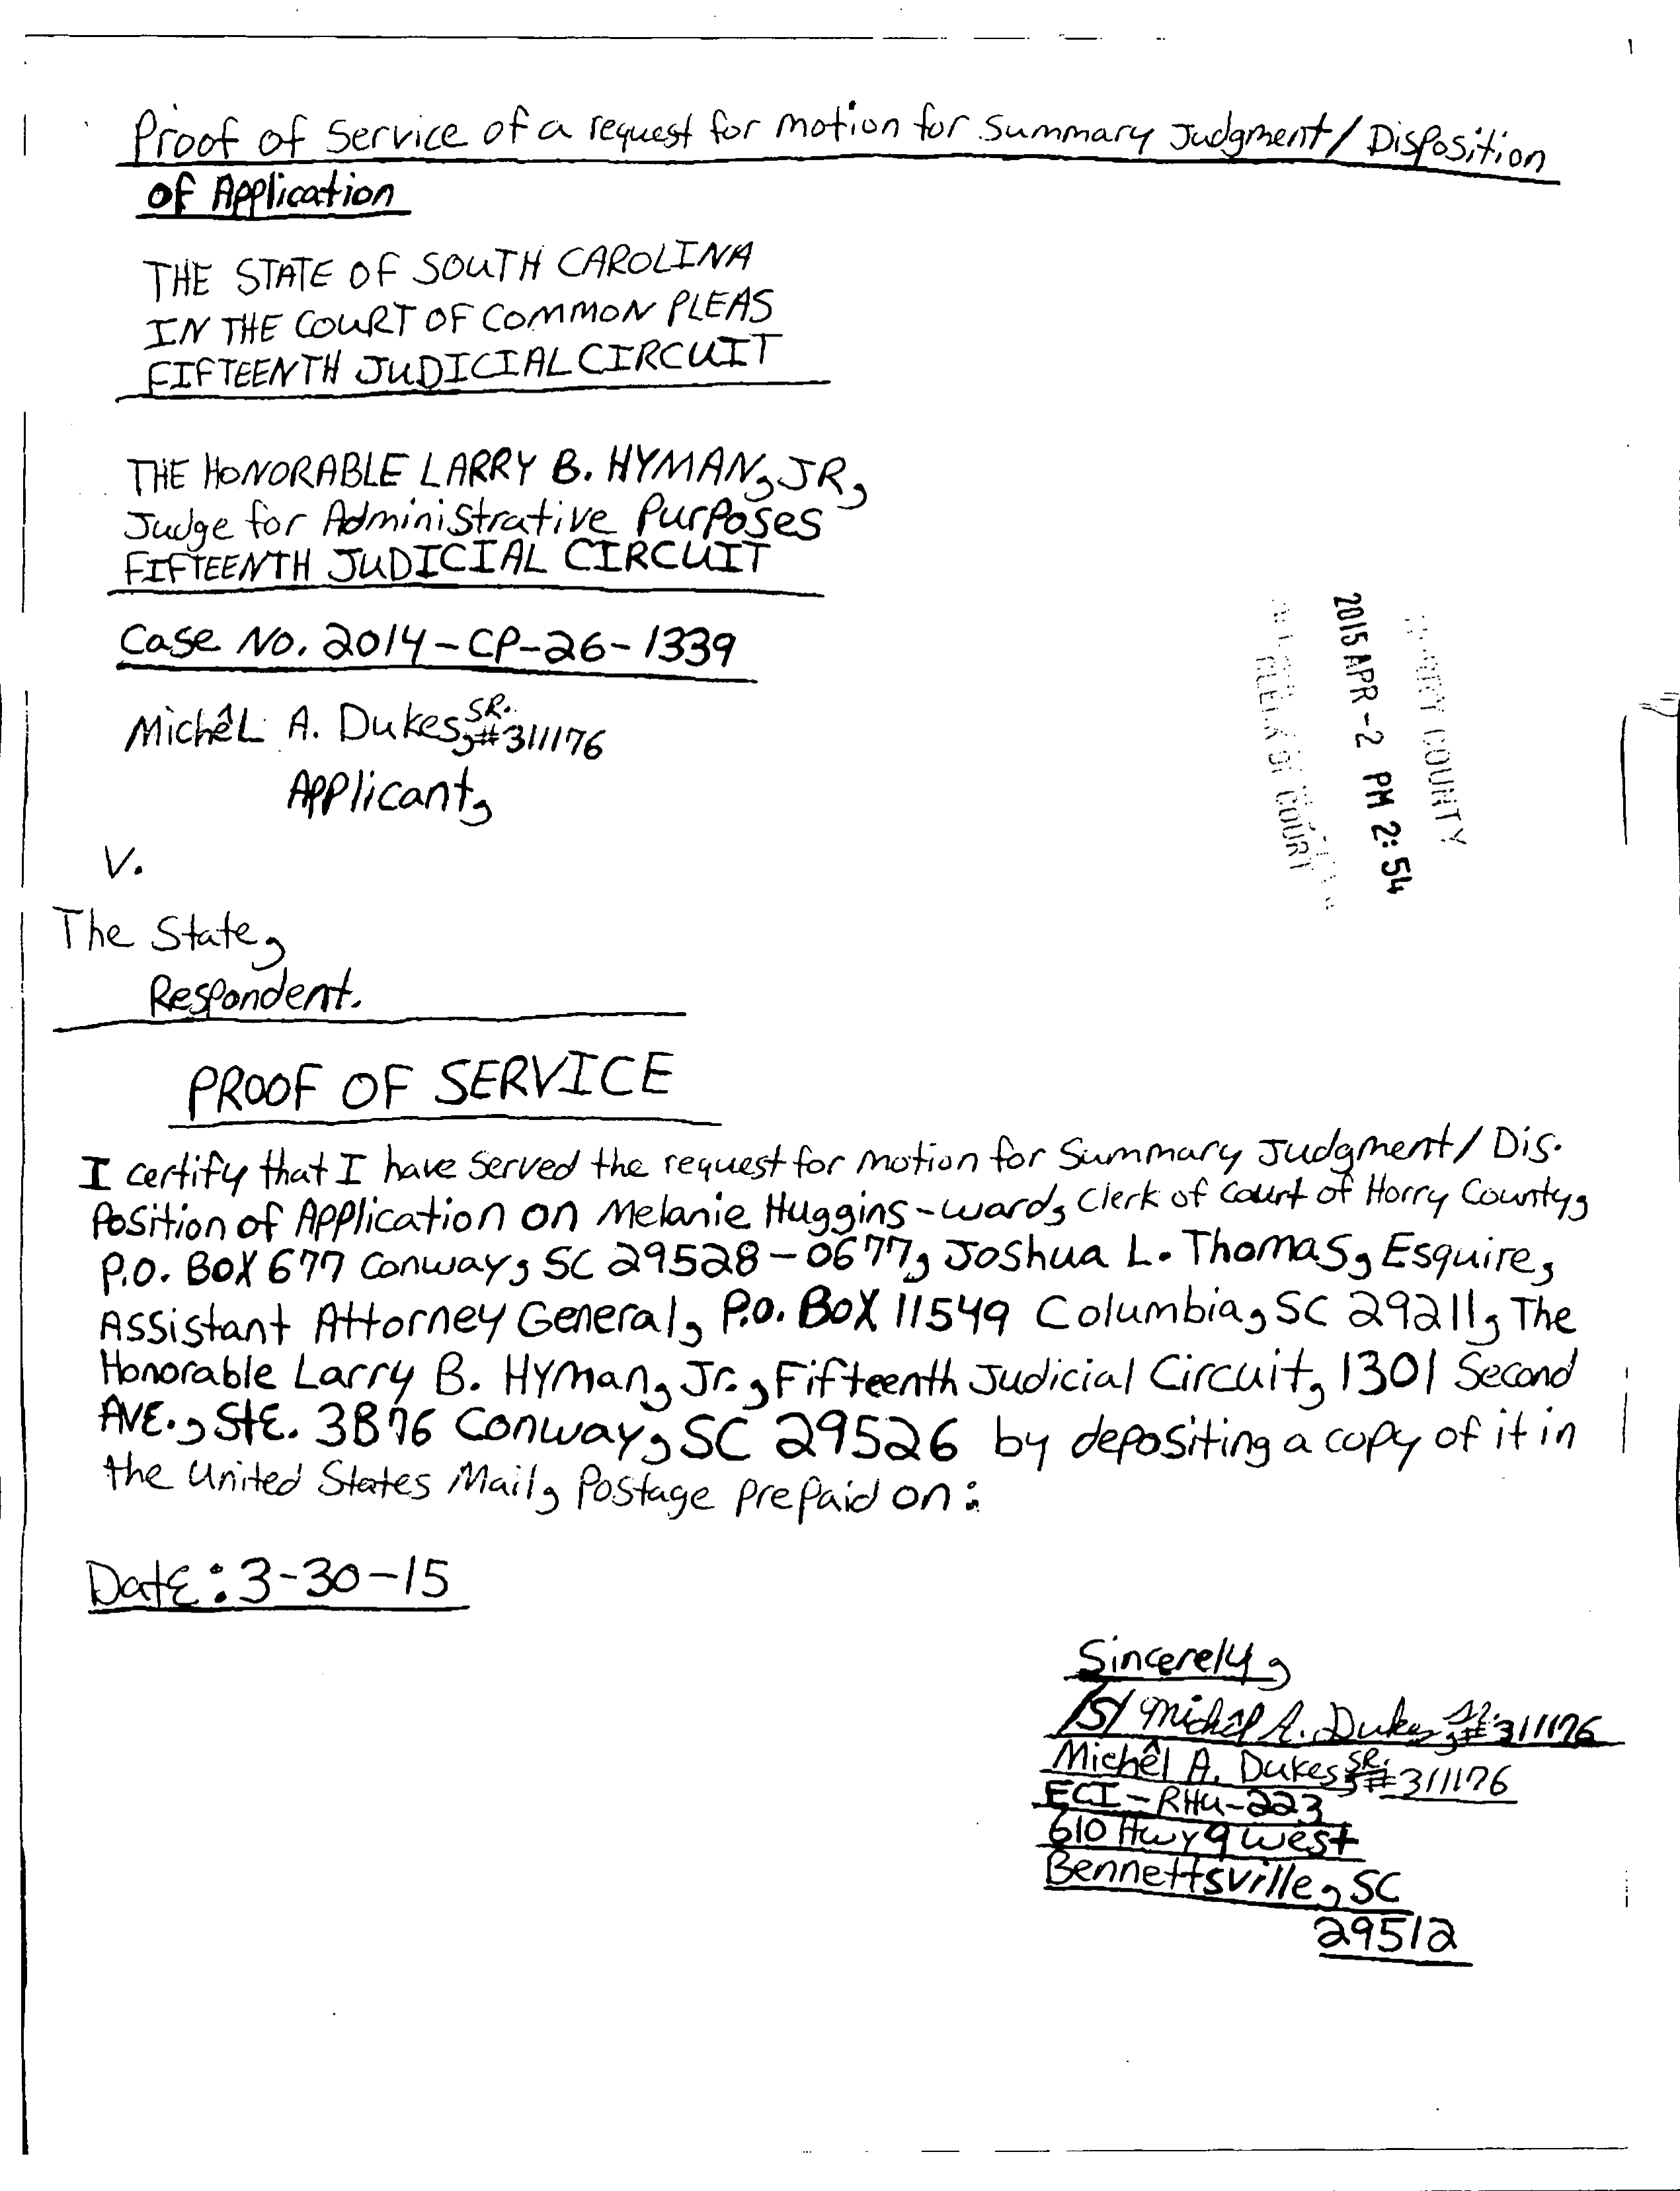 Proof of Service of a request for motion for Summary Judgment/Disposition
of Application
THE STATE OF SOUTH CAROLINA
IN THE COURT OF COMMON PLEAS
FIFTEENTH JUDICIAL CIRCUIT
THE HONORABLE LARRY B. HYMAN, JR,
Judge for Administrative Purposes
FIFTEENTH JUDICIAL CIRCUIT
Case No. 2014-CP-26-1339
Michêl A. Dukes, SR. #311176
Applicant,
V.
The State,
Respondent.
COUNTY
2015 APR -2 PM 2:54
CLERK OF COURT
PROOF OF SERVICE
I certify that I have served the request for motion for Summary Judgment/Dis-
Position of Application on Melanie Huggins-ward, Clerk of Court of Horry County,
P.O. BOX 677 Conway, SC 29528-0677, Joshua L. Thomas, Esquire,
Assistant Attorney General, P.O. BOX 11549 Columbia, SC 29211, The
Honorable Larry B. Hyman, Jr., Fifteenth Judicial Circuit, 1301 Second
AVE., StE. 3B76 Conway, SC 29526 by depositing a copy of it in
the United States Mail, Postage prepaid on:
Date: 3-30-15
Sincerely,
/S/ Michêl A. Dukes, Sr. #311176
Michêl A. Dukes, SR. #311176
ECI-RHU-223
610 Hwy 9 West
Bennettsville, SC
29512